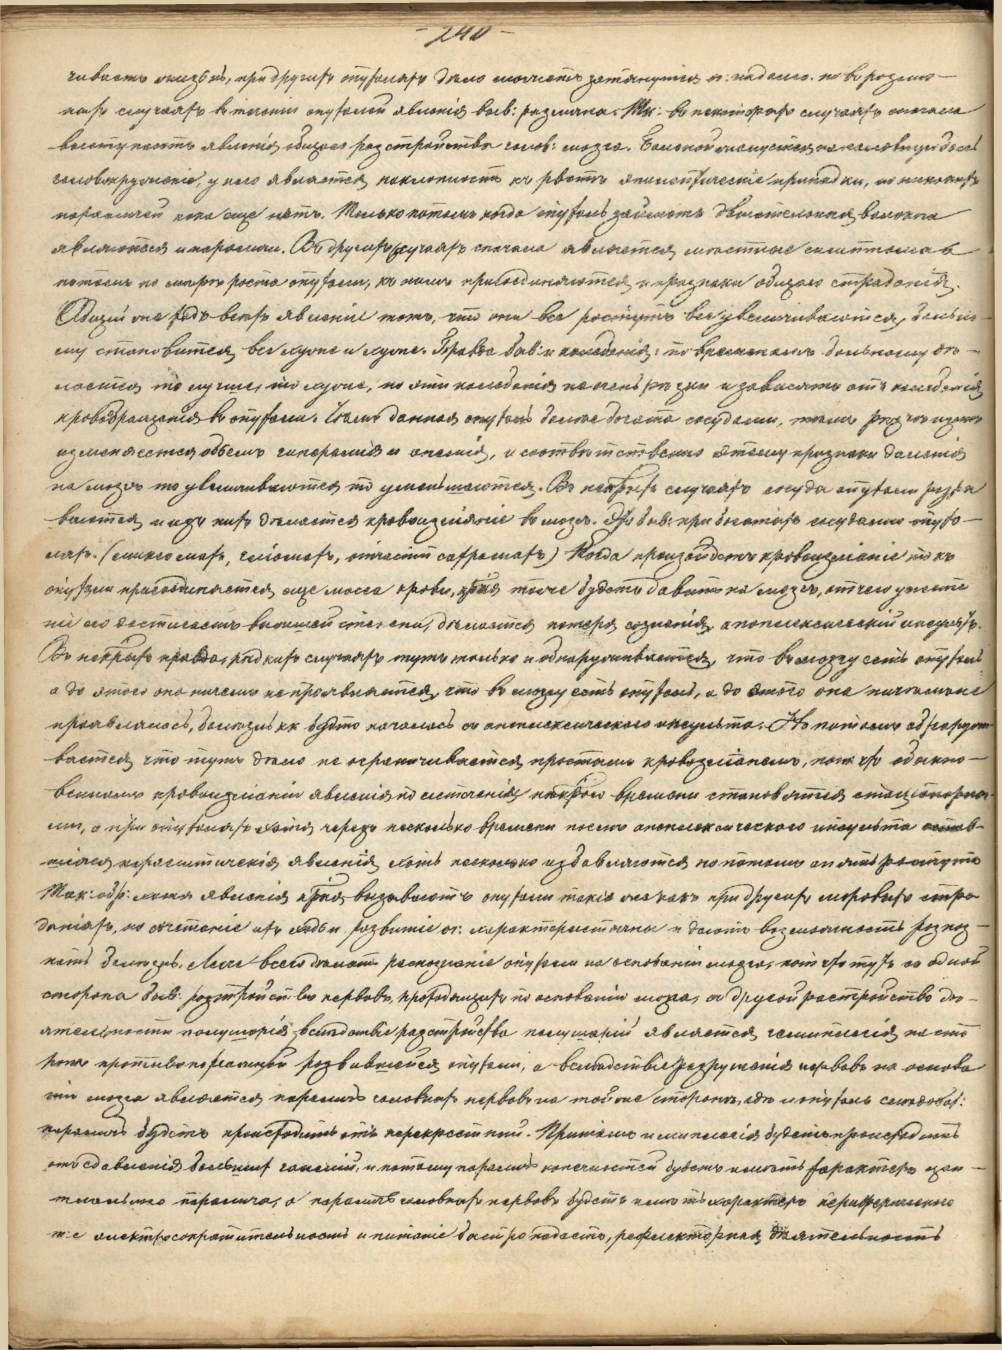 - 240 -
чиваетъ жизнь, при другихъ опухоляхъ дѣло можетъ затянуться о: надолго. но въ розлич-
ныхъ случаяхъ въ теченіи опухолей явленія быв: различны. Тк: въ некоторыхъ случаяхъ сначала
выступаютъ явленія общаго разстройства голов: мозга. Больной жалуется на головную боль
головокруженіе, у него является наклонность къ рвотѣ эпилептическіе припадки, но никакихъ
параличей пока еще нѣтъ. Только потомъ когда опухоль займетъ двигательныя волокна
являются и параличи. Въ другихъ случаяхъ сначала являются мѣстные симптомы а
потомъ по мѣрѣ роста опухоли, къ нимъ присоединяются и признаки общаго страданія.
Общій же для всѣхъ явленіе тотъ, что они все ростутъ все увеличиваются, больно-
му становится все хуже и хуже. Правда быв: и колебанія: по временамъ больному дѣ-
лается то лучше, то хуже, но эти колебанія не очень рѣзки и зависятъ отъ колебанія
кровообращенія въ опухоли. Чѣмъ данная опухоль болѣе богата сосудами, тѣмъ рѣзче
измѣняется объемъ гипереміи и анеміи, и соотвѣтственно этому признаки давленія
на мозгъ то увеличиваются то уменьшаются. Въ некрыхъ случаяхъ сосуды опухоли разры
ваются и изъ нихъ дѣлается кровоизліяніе въ мозгъ. Это быв: при богатыхъ сосудами опухо-
ляхъ. (миксомахъ, гліомахъ, отчасти саркомахъ) Когда произойдетъ кровоизліяніе то къ
опухоли присоединяется еще масса крови, края тоже будетъ давить на мозгъ, отчего угнете
ніе его достигаетъ высшей степени, дѣлается потеря сознанія, апоплексическій инсультъ.
Въ некрыхъ правда, рѣдкихъ случаяхъ тутъ только и обнаруживается, что въ мозгу есть опухоль
а до этого она ничемъ не проявляется, что въ мозгу есть опухоль, а до этого она ничемъ не
проявлялась, болѣзнь кк будто началась съ апоплексическаго инсульта. Но потомъ обнаружи
вается что тутъ дѣло не ограничивается простымъ кровоизліяніемъ, пот: что обыкно-
веннымъ кровоизліяніи явленія по истеченіи некраго времени становятся стаціонарны-
ми, а при опухоляхъ хотя черезъ несколько времени послѣ апоплексическаго инсульта остав-
шіяся паралитическія явленія хоть несколько избавляются но потомъ опять ростутъ
Так: обр: хотя явленія крыя вызываютъ опухоли такія же какъ при другихъ мозговыхъ стра
даніяхъ, но сочетаніе ихъ ходъ и развитіе о: характеристичны и даютъ возможность розпоз-
нать болѣзнь. Легче всего дѣлать распознаніе опухоли на основаніи мозга, пот: что тутъ съ одной
стороны быв: разстройство нервовъ, проходящихъ по основанію мозга, съ другой растройство дѣ-
ятельности полушарія, вслѣдствіе разстройства полушарій является гемиплегія на сто
ронѣ противоположной развившейся опухоли, а вслѣдствіе разрушенія нервовъ на основа
ніи мозга является параличъ головныхъ нервовъ на той же сторонѣ, гдѣ и опухоль слѣдоват:
параличъ будетъ происходить отъ перекрестный. Притомъ гемиплегія будетъ происходить
отъ сдавленія большихъ ганглій, и потому параличъ конечностей будетъ имѣть характеръ цен-
тральнаго паралича, а параличъ головныхъ нервовъ будетъ имѣть характеръ периферическаго
т: е электросократительность и питаніе быстро падаетъ, рефлекторная дѣятельность